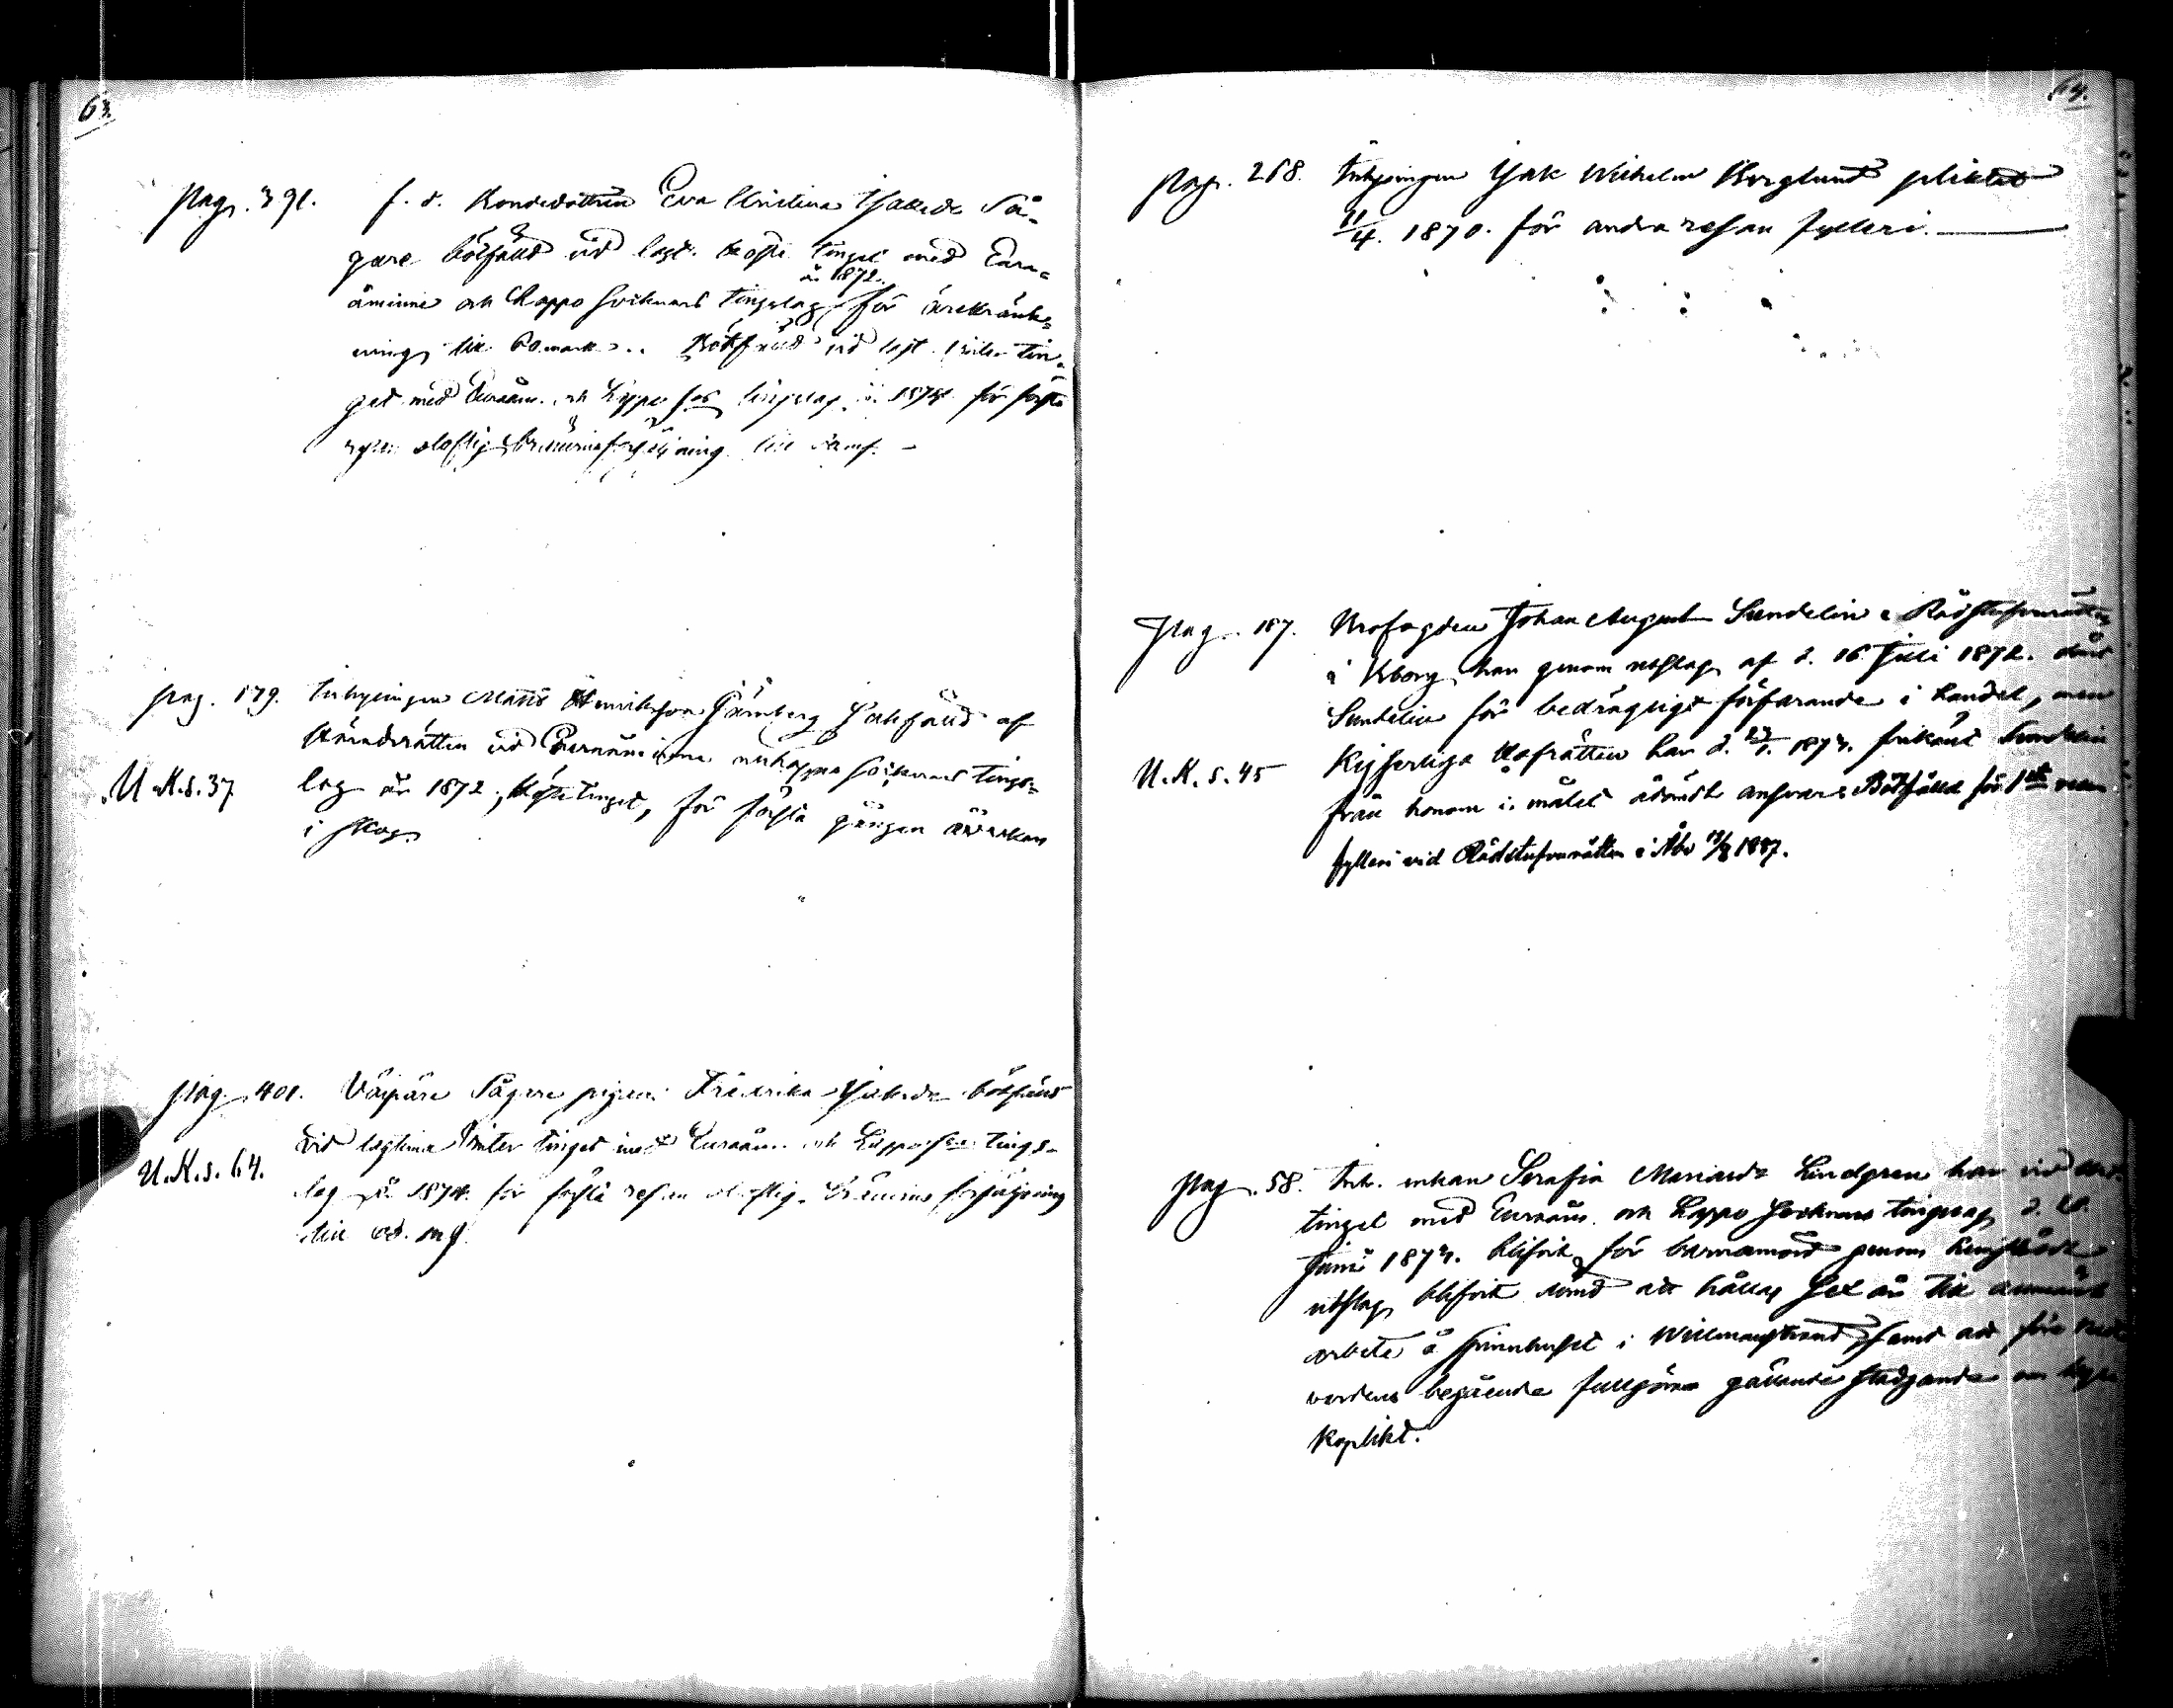 63.
pag. 391. f. d. Bondedottren Eva Christina Isaksdr Så-
gare bötfälld vid lagt. höste tinget med Eura-
åminne och Lappo socknars tingslag år 1872. för ärekränk-
ning till 60 mark. Bötfälld vid lagt. vinter tin-
get med Euraåm. och Lappo sos tingslag år 1874 för första
resan olaflig bränvinsförsäljning till samf. –
pag. 179. Inhysingen Matts Henriksson Jernberg sakfälld af
Häradsrätten vid Euraåminne och Lappo socknars tings-
U.K.s.37 lag år 1872, höstetinget, för första gången åverkan
i skog.
pag. 401. Sågare pigan Fredrika Isaksdr bötfälld
vid lagtima vinter tinget med Euraåm. och Lappo sos tings-
U.K.s.64. lag år 1874 för första resan olaflig bränvins försäljning
till
64.
pag. 268. Inhysingen Isak Wilhelm Berglund pliktat
11/4. 1870. för andra resan fylleri.
pag. 187. Krofogden Johan August Sundelin. Rådstufvurätten
i Wborg har genom utslag af d. 16 Juli 1872. dömt
Sundelin för bedrägligt förfarande i handel, men
U.K.s.45 Kejserliga Hofrätten har d. 1873. frikänt Sundelin
från honom i målet ådömdt ansvar. Bötfälld för 1sta resan
fylleri vid Rådstufvurätten i Åbo 1887.
pag. 58. Inh. enkan Serafia Mariasdr Lindgren har vid
tinget med Euraåm. och Lappo Socknars tingslag d.
Juni 1873. blifvit för barnamord genom
utslag blifvit dömd att hållas sex år till allmänt
arbete å spinnhuset i Willmanstrand samt att före
wardens begående fullgöra gällande stadganden om kyr-
koplikt.